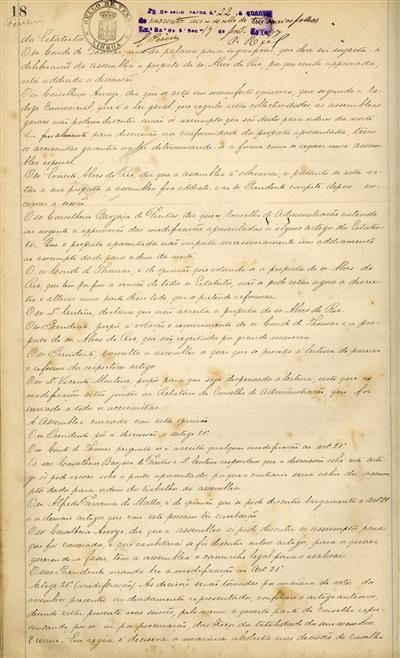 18
SELLO DE VERBA
LISBOA
Pg. de sello verba nº 22 a quantia
de duzentos reis
dos Estatutos.
O sr. Conde de Thomar
deliberação da assembléa a proposta do sr. Alves do Rio, porque sendo approvada,
está addiada a discussão.
O sr. Conselheiro Arroyo, diz que se está em manifesto equivoco, que segundo o Co-
digo Commercial, que é a lei geral, que regula estas collectividades, as assembléas
geraes não podem discutir senão os assumptos que são dados para ordem da noite.
os accionistas garantia na lei determinando-se a forma como se requer uma assem-
bléa especial.
O sr. Alves do Rio, diz que a assembléa é soberana, e portanto se esta vo-
tar a sua proposta a assembléa fica addiada, e ao sr. Presidente compete depois en-
cerrar a sessão.
O sr. Conselheiro Barjona de Freitas diz que o Conselho de Administração entende
ser urgente a approvação das modificações apresentadas a alguns artigos dos Estatu-
tos. Que a proposta apresentada não importa necessariamente um addiamento
ao assumpto dado para ordem da noite.
O sr. Conde de Thomar, é de opinião que votando-se a proposta do sr. Alves do
Rio, que tem por fim a revisão de todos os Estatutos, não se pode estar agora a discu-
tir e alterar uma parte d'esse todo que se pretende reformar.
O sr. Dr. Centeno, declara que não acceita a proposta do sr. Alves do Rio.
O sr. Presidente, propõe á votação o requerimento do sr. Conde de Thomar e a pro-
posta do sr. Alves do Rio, que são regeitados por grande maioria.
O sr. Presidente, consulta a assembléa se quer que se proceda á leitura do parecer
e reforma do respectivo artigo.
O sr. Dr. Vicente Monteiro, propõe para que seja dispensada a leitura, visto que as
modificações estão juntas ao Relatorio do Conselho de Administração, que foi
enviado a todos os accionistas.
A Assembléa concorda com esta opinião.
O sr. Presidente põe á discussão o artigo 21º
O sr. Conde de Thomar pergunta se é acceita qualquer modificação ao artº 21º.
Os srs. Conselheiro Barjona de Freitas e Dr. Centeno respondem que a discussão sobre este arti-
go só pode versar sobre o ponto apresentado, porque o contrario seria sahir do assum-
pto dado para ordem do trabalho da assembléa.
O sr. Alfredo Ferreira de Mattos, é de opinião que se pode discutir largamente o Artº 21
e os demais artigos que com este possam ter correlação.
O sr. Conselheiro Arroyo, diz que a assembléa só pode discutir os assumptos para
que foi convocada, e que exorbitaria se fôr discutir outros artigos, para o que
querendo-o fazer, tem a assembléa o caminho legal para o realisar.
O sr. Presidente manda ler a modificação ao Artº 21º.
Artigo 21º (modificação) As decisões serão tomadas por maioria de votos dos
membros presentes ou devidamente representados, conforme o artigo anterior,
devendo estar presente nas sessões, pelo menos, a quarta parte do Conselho repre-
sentando por si ou por procuração dois terços da totalidade dos seus membros
§ unico. Em regra é decisiva a maioria absoluta nas decisões do Conselho